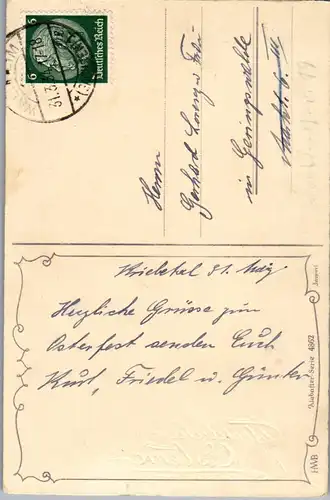 6 Deutsches Reich 6
31.3.
Herrn
Gerhard Lorenz u. Frau
in Geringswalde
Markt
Kriebetal 31. März
Herzliche Grüsse zum
Osterfest senden Euch
Kurt, Friedel u. Günter
Aishester-Serie 4862
HWB